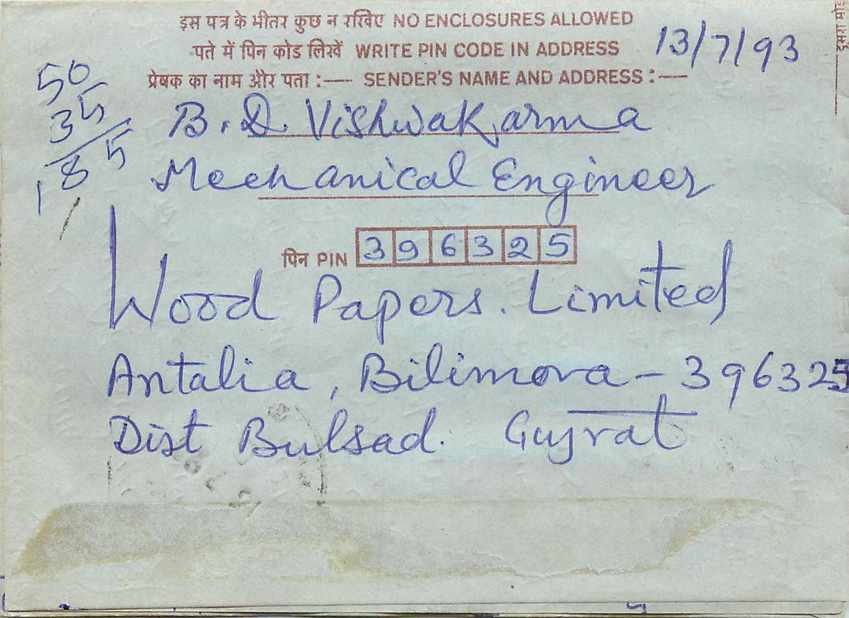 इस पत्र के भीतर कुछ न रखिए NO ENCLOSURES ALLOWED
पते में पिन कोड लिखें WRITE PIN CODE IN ADDRESS
13/7/93
प्रेषक का नाम और पता :— SENDER'S NAME AND ADDRESS :—
50
35
185
B. D. Vishwakarma
Mechanical Engineer
पिन PIN 396325
Wood Papers. Limited
Antalia, Bilimora - 396325
Dist Bulsad. Gujrat